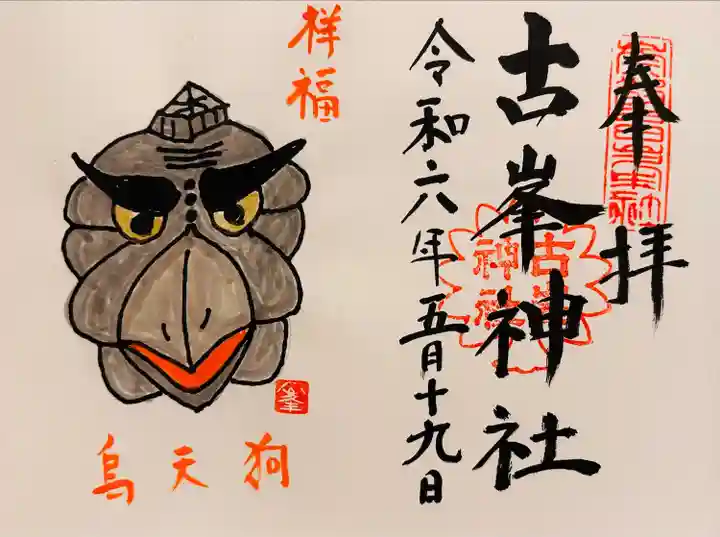 奉拝
古峯神社
令和六年五月十九日
古峯
神社
祥福
烏天狗
峯